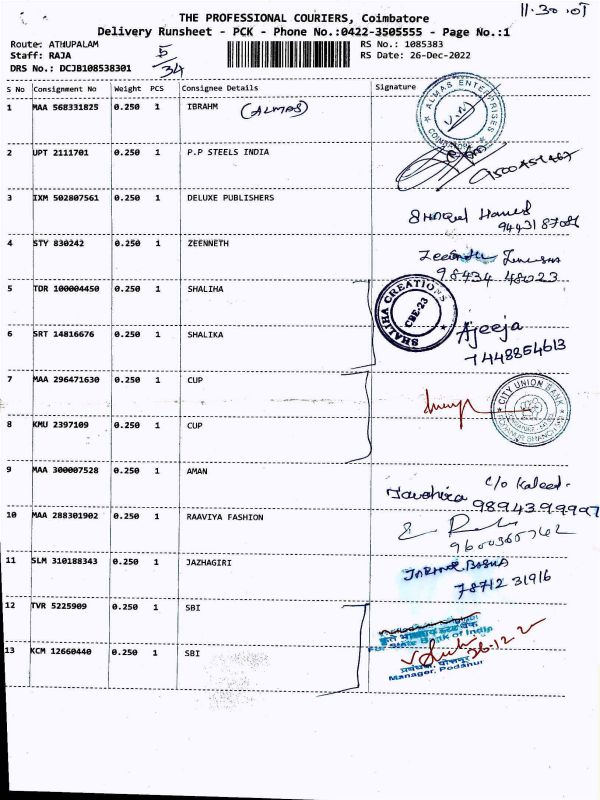 11.30.01
THE PROFESSIONAL COURIERS, Coimbatore
Delivery Runsheet - PCK - Phone No.:0422-3505555 - Page No.:1
Route: ATHUPALAM
RS No.: 1085383
Staff: RAJA
5/34
RS Date: 26-Dec-2022
DRS No.: DCJB108538301
S No Consignment No Weight PCS Consignee Details Signature
1 MAA 568331825 0.250 1 IBRAHM (ALMAS)
ALMAS ENTERPRISES
COIMBATORE
2 UPT 2111701 0.250 1 P.P STEELS INDIA
3 IXM 502807561 0.250 1 DELUXE PUBLISHERS
4 STY 830242 0.250 1 ZEENNETH
98434 48023
5 TDR 100004450 0.250 1 SHALIHA
SHALIHA CREATIONS
CBE-23
6 SRT 14816676 0.250 1 SHALIKA
Ajeeja
7448854613
7 MAA 296471630 0.250 1 CUP
CITY UNION BANK
8 KMU 2397109 0.250 1 CUP
9 MAA 300007528 0.250 1 AMAN
c/o Kaleed.
9894399997
10 MAA 288301902 0.250 1 RAAVIYA FASHION
9600360762
11 SLM 310188343 0.250 1 JAZHAGIRI
78712 31916
12 TVR 5225909 0.250 1 SBI
For State Bank of India
13 KCM 12660440 0.250 1 SBI
26.12.22
Manager, Podanur